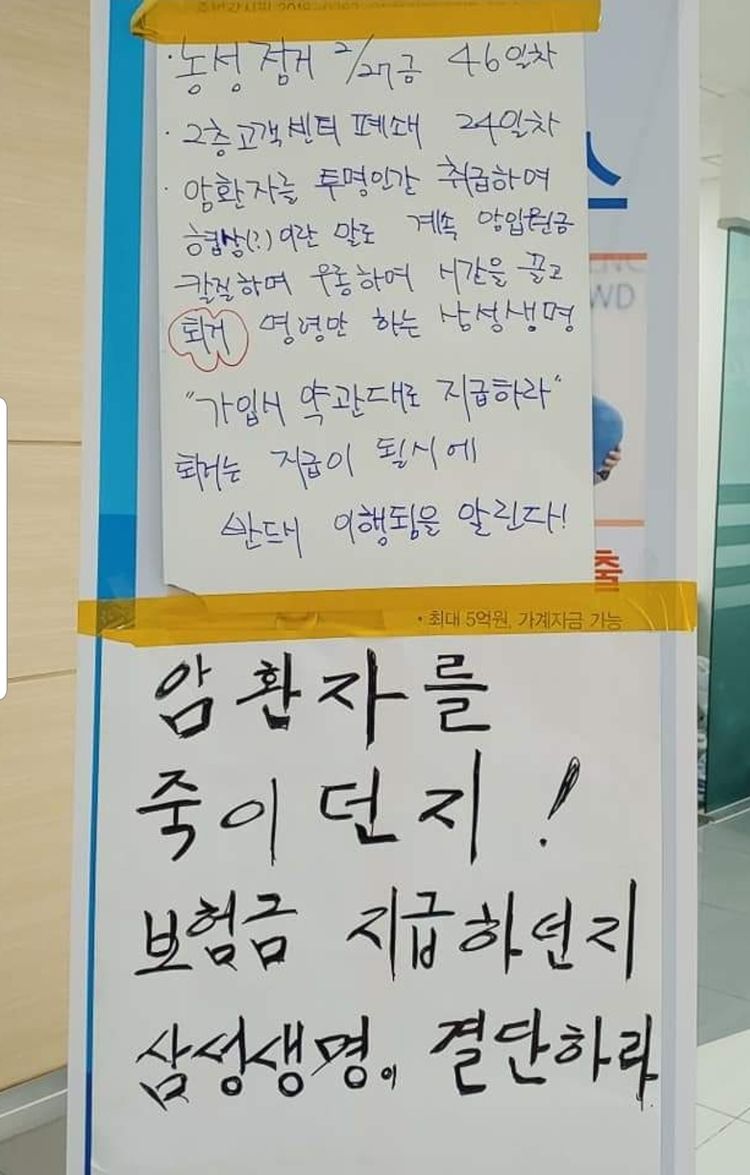 · 농성점거 2/27금 46일차
· 2층고객센터 폐쇄 24일차
· 암환자를 투명인간 취급하여
협상(?)이란 말로 계속 암입원금
칼질하며 우롱하며 시간을 끌고
퇴거 명령만 하는 삼성생명
"가입시 약관대로 지급하라"
퇴거는 지급이 될시에
반드시 이행됨을 알린다!
스
WD
출
• 최대 5억원, 가계자금 가능
암환자를
죽이던지!
보험금 지급하던지
삼성생명이 결단하라